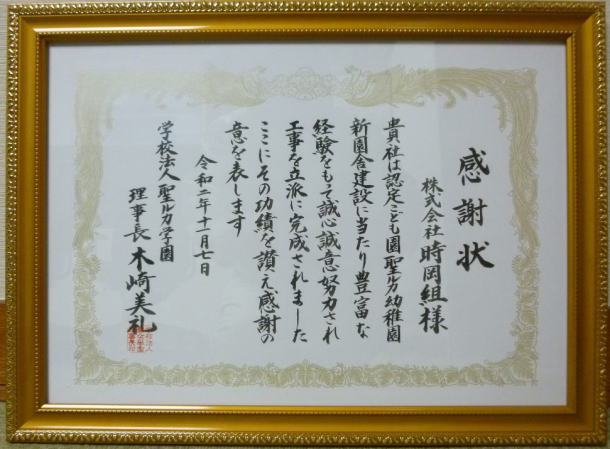 感謝状
株式会社 時岡組様
貴社は認定こども園聖ルカ幼稚園
新園舎建設に当たり豊富な
経験をもって誠心誠意努力され
工事を立派に完成されました
ここにその功績を讃え感謝の
意を表します
令和二年十一月七日
学校法人 聖ルカ学園
理事長 木崎美礼